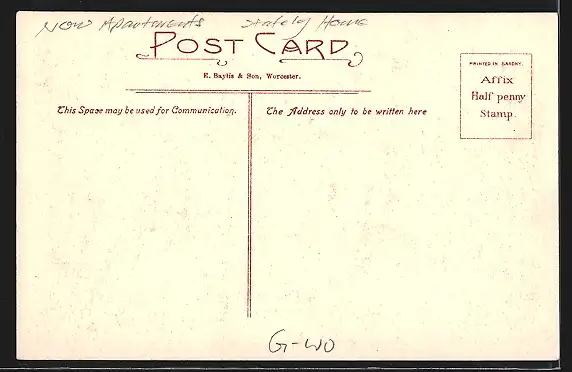 NOW Apartments Stately Home
POST CARD
E. Baylis & Son, Worcester.
This Space may be used for Communication.
The Address only to be written here
PRINTED IN SAXONY.
Affix
Half penny
Stamp.
G-WO